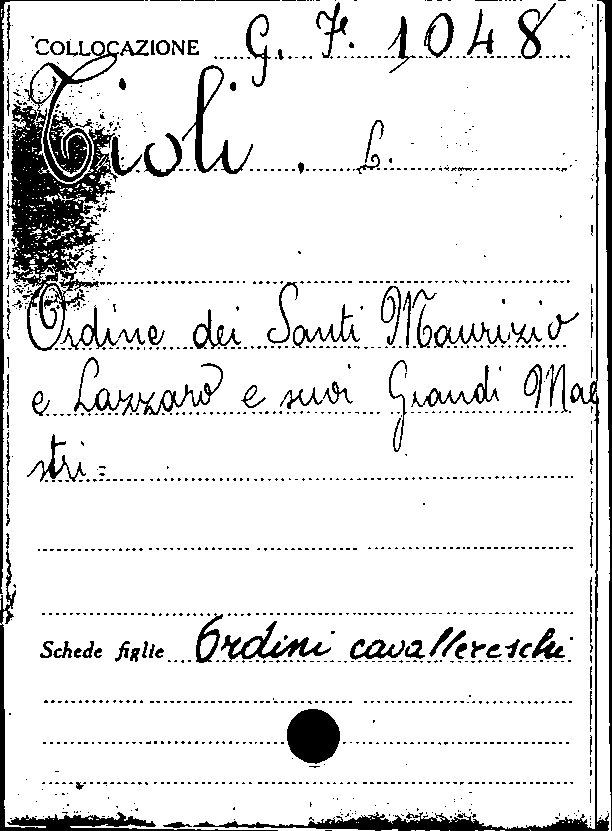 COLLOCAZIONE G. F. 1048
Tioli. L.
Ordine dei Santi Maurizio
e Lazzaro e suoi Grandi Mae
stri=
Schede figlie Ordini cavallereschi